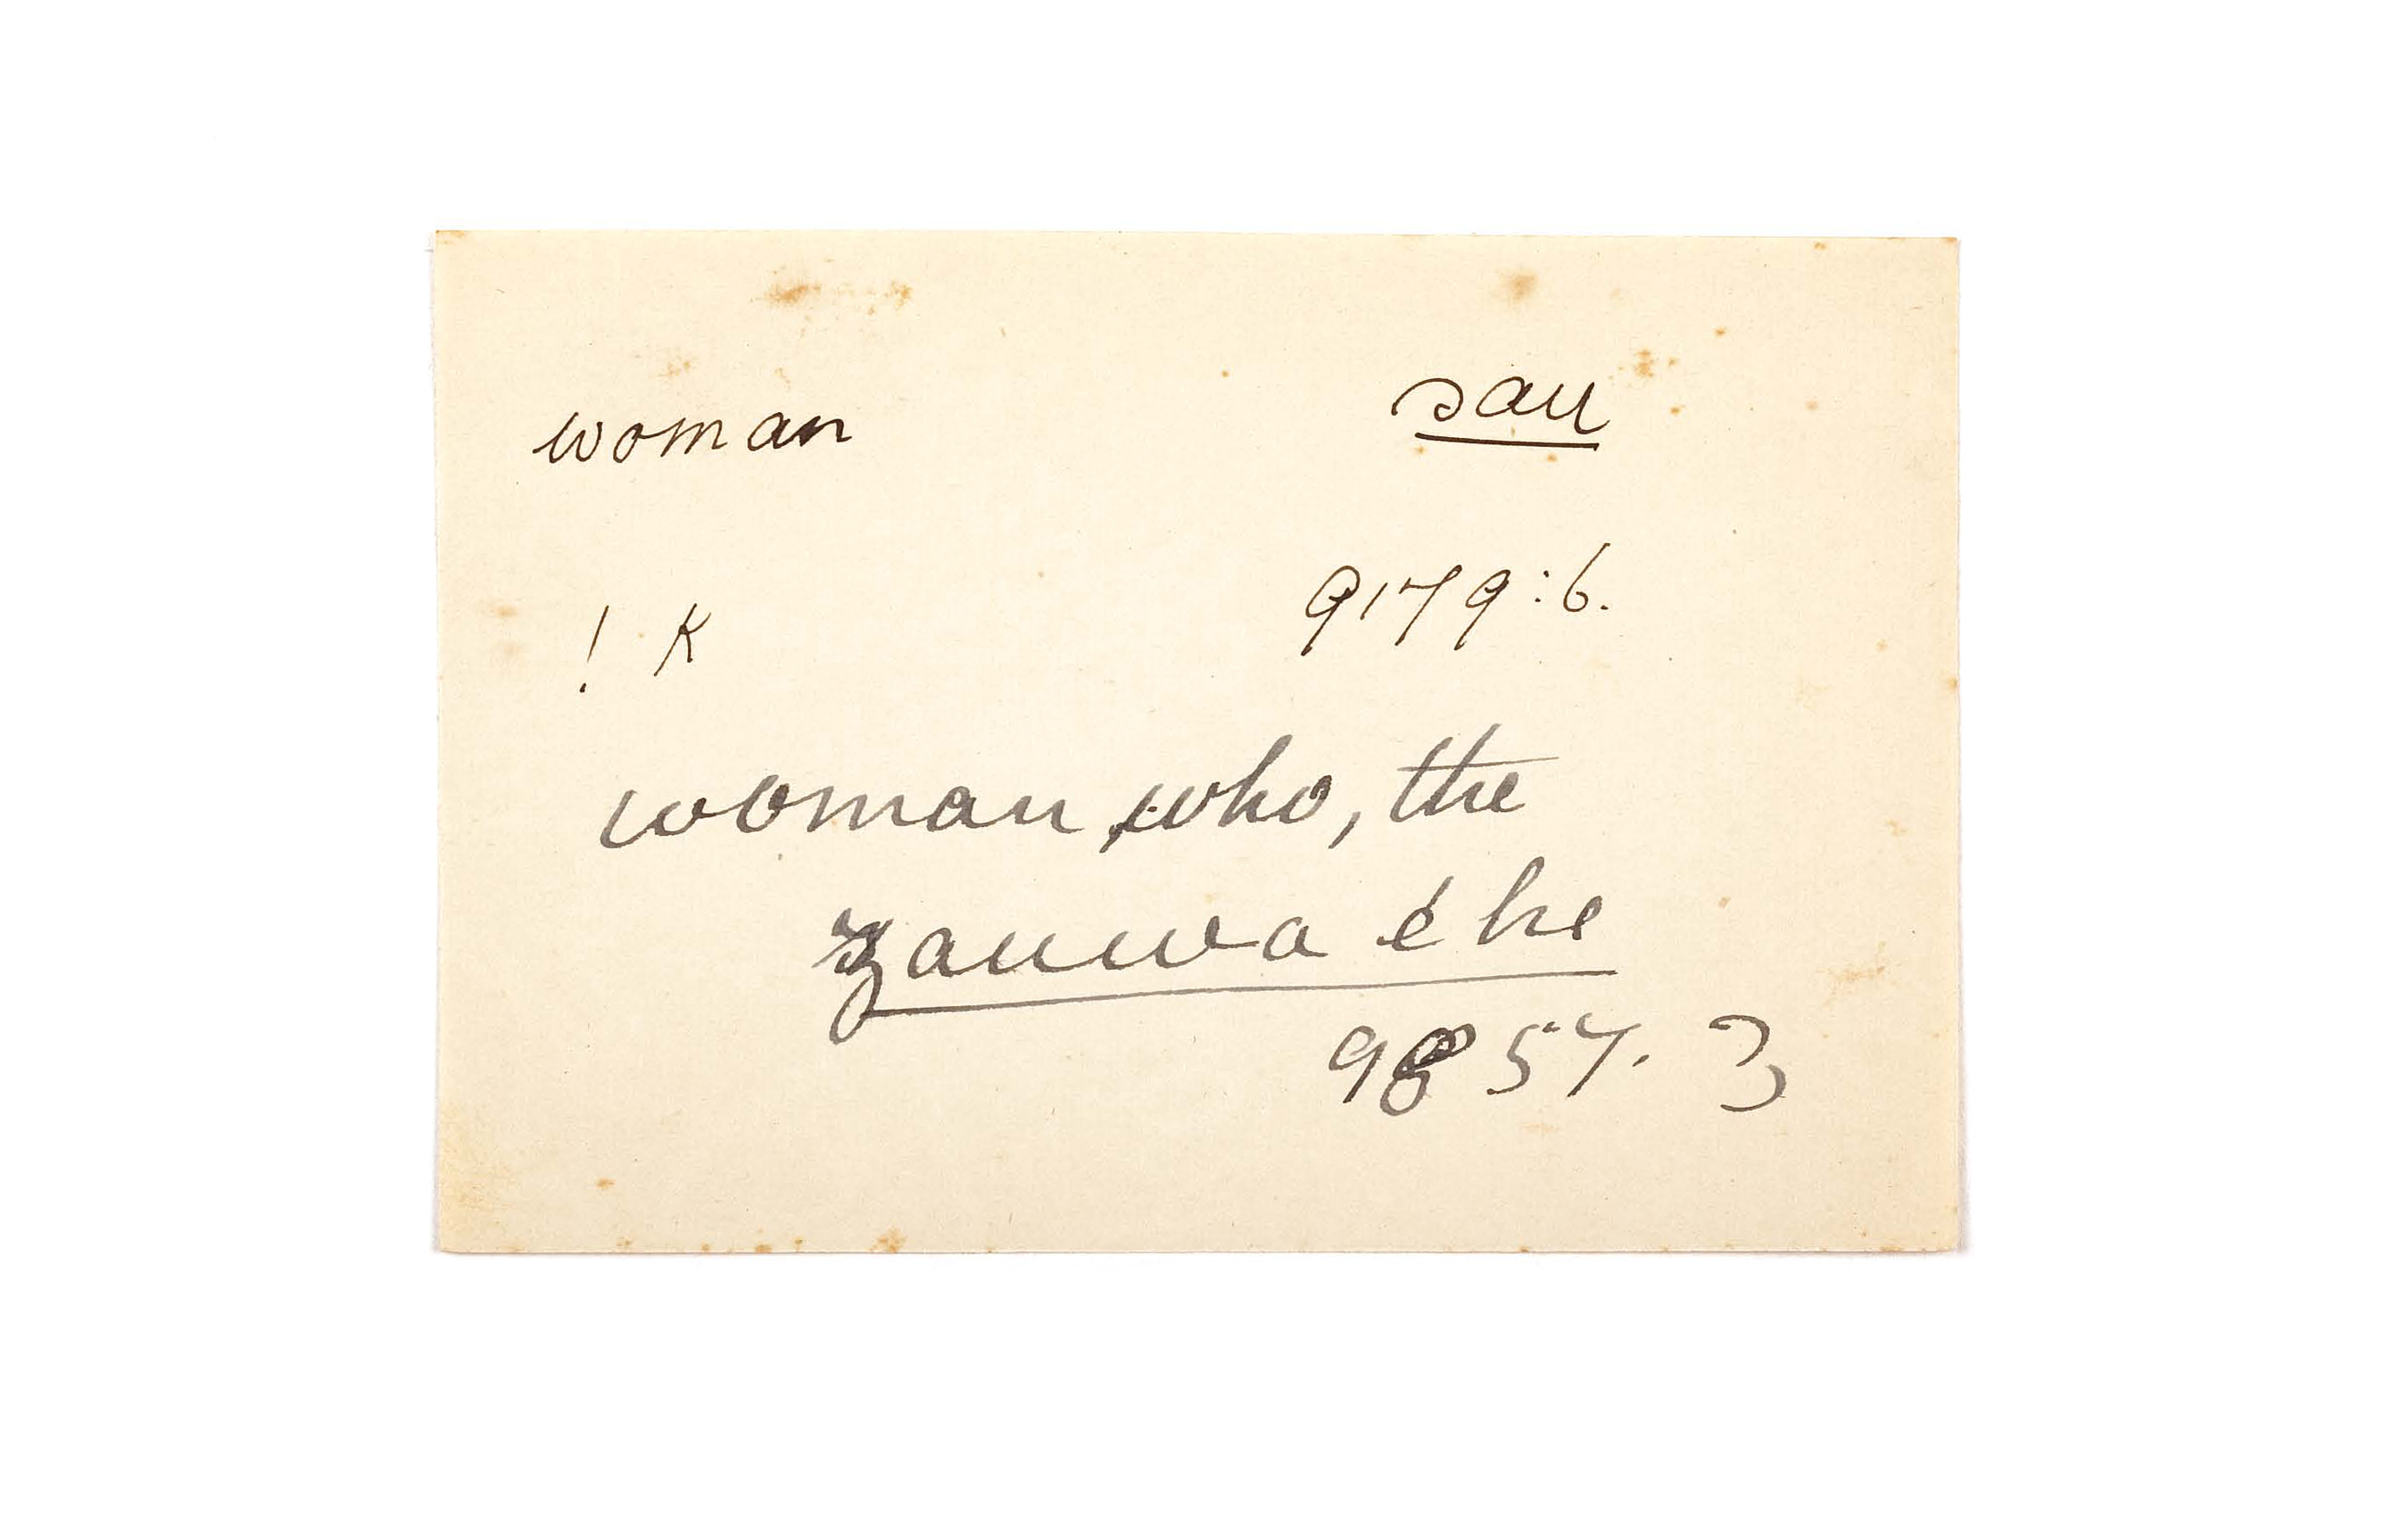 woman sau
! K 9179:6.
woman, who, the
zauwa é he
9857. 3